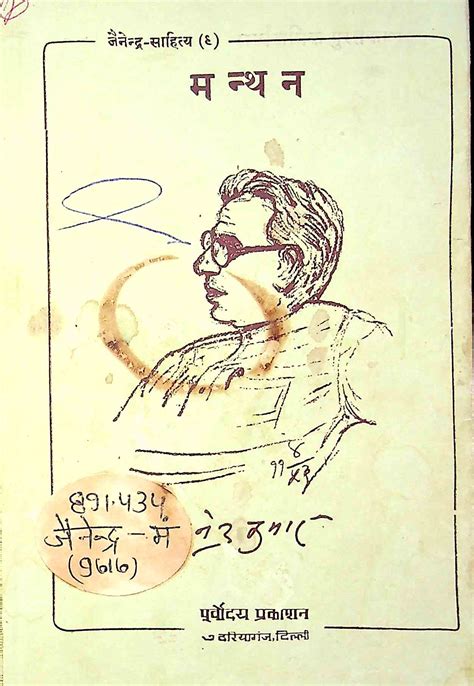 जैनेन्द्र-साहित्य (६)
मन्थन
११ ४
५३
८९१.४३५
जैनेन्द्र – मं
(९७७)
कुमार
पूर्वोदय प्रकाशन
७ दरियागंज, दिल्ली